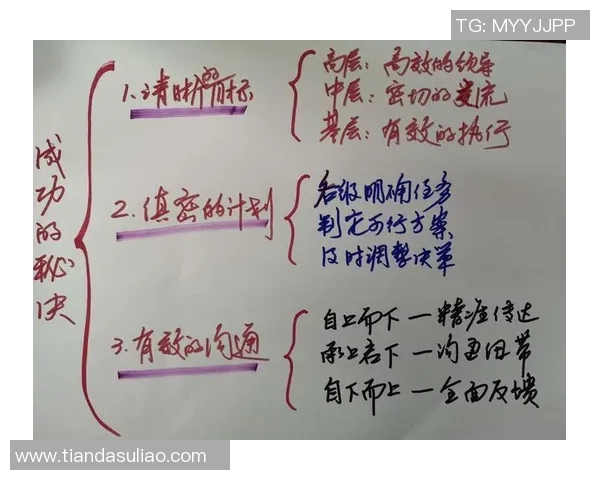 TG: MYYJJPP
成功的秘决
1.清晰的目标
高层：高效的领导
中层：密切的交流
基层：有效的执行
2.缜密的计划
各级明确任务
判定可行方案
及时调整决策
3.有效的沟通
自上而下—精准传达
承上启下—沟通纽带
自下而上—全面反馈
www.tiandasuliao.com